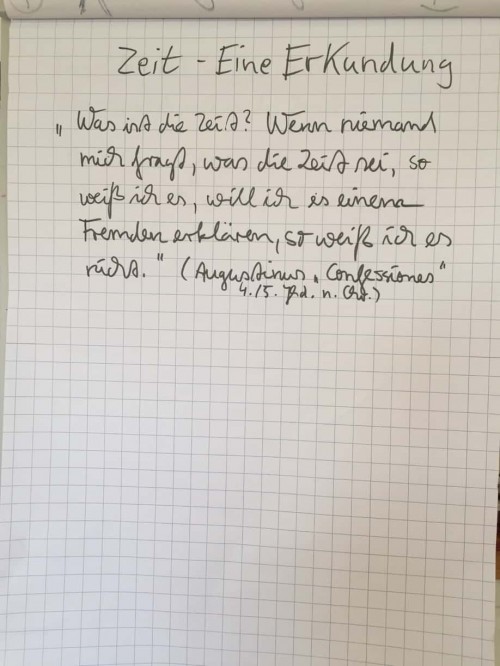 Zeit - Eine Erkundung
„Was ist die Zeit? Wenn niemand
mich fragt, was die Zeit sei, so
weiß ich es, will ich es einem
Fremden erklären, so weiß ich es
nicht." (Augustinus „Confessiones"
4./5. Jhd. n. Chr.)